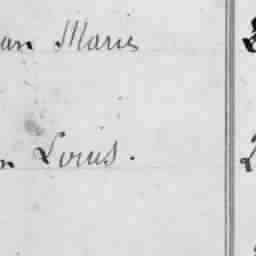 an Marie
n Louis.